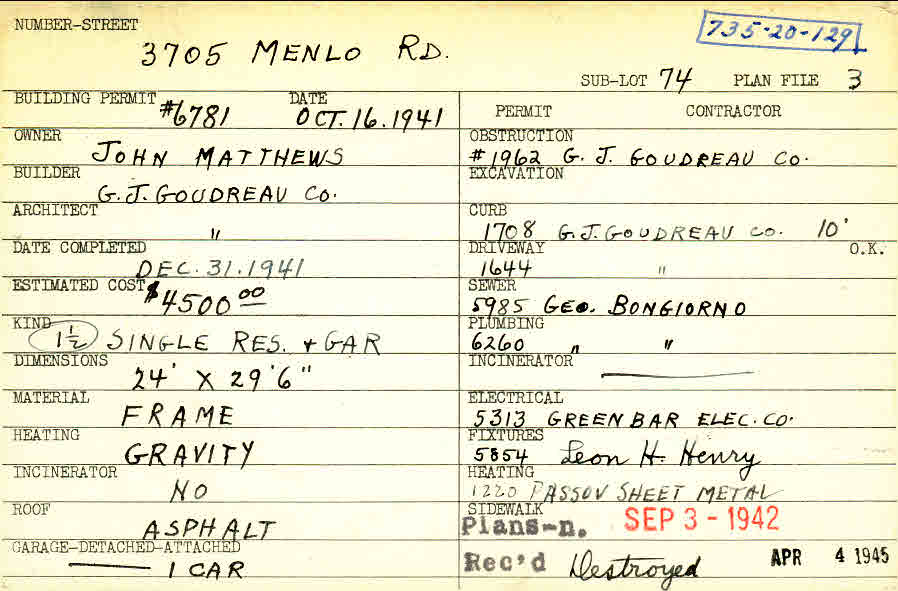 NUMBER-STREET
3705 MENLO RD.
735-20-129
SUB-LOT 74 PLAN FILE 3
BUILDING PERMIT #6781 DATE OCT. 16. 1941
OWNER
JOHN MATTHEWS
BUILDER
G. J. GOUDREAU CO.
ARCHITECT
"
DATE COMPLETED
DEC. 31. 1941
ESTIMATED COST $4500 00
KIND
1½ SINGLE RES. + GAR
DIMENSIONS
24' X 29'6"
MATERIAL
FRAME
HEATING
GRAVITY
INCINERATOR
NO
ROOF
ASPHALT
GARAGE-DETACHED-ATTACHED
1 CAR
PERMIT CONTRACTOR
OBSTRUCTION
#1962 G. J. GOUDREAU CO.
EXCAVATION
CURB
1708 G. J. GOUDREAU CO. 10'
DRIVEWAY O.K.
1644 "
SEWER
5985 GEO. BONGIORNO
PLUMBING
6260 " "
INCINERATOR
ELECTRICAL
5313 GREENBAR ELEC. CO.
FIXTURES
5854 Leon H. Henry
HEATING
1220 PASSOV SHEET METAL
SIDEWALK
Plans-n. SEP 3 - 1942
Rec'd Destroyed APR 4 1945